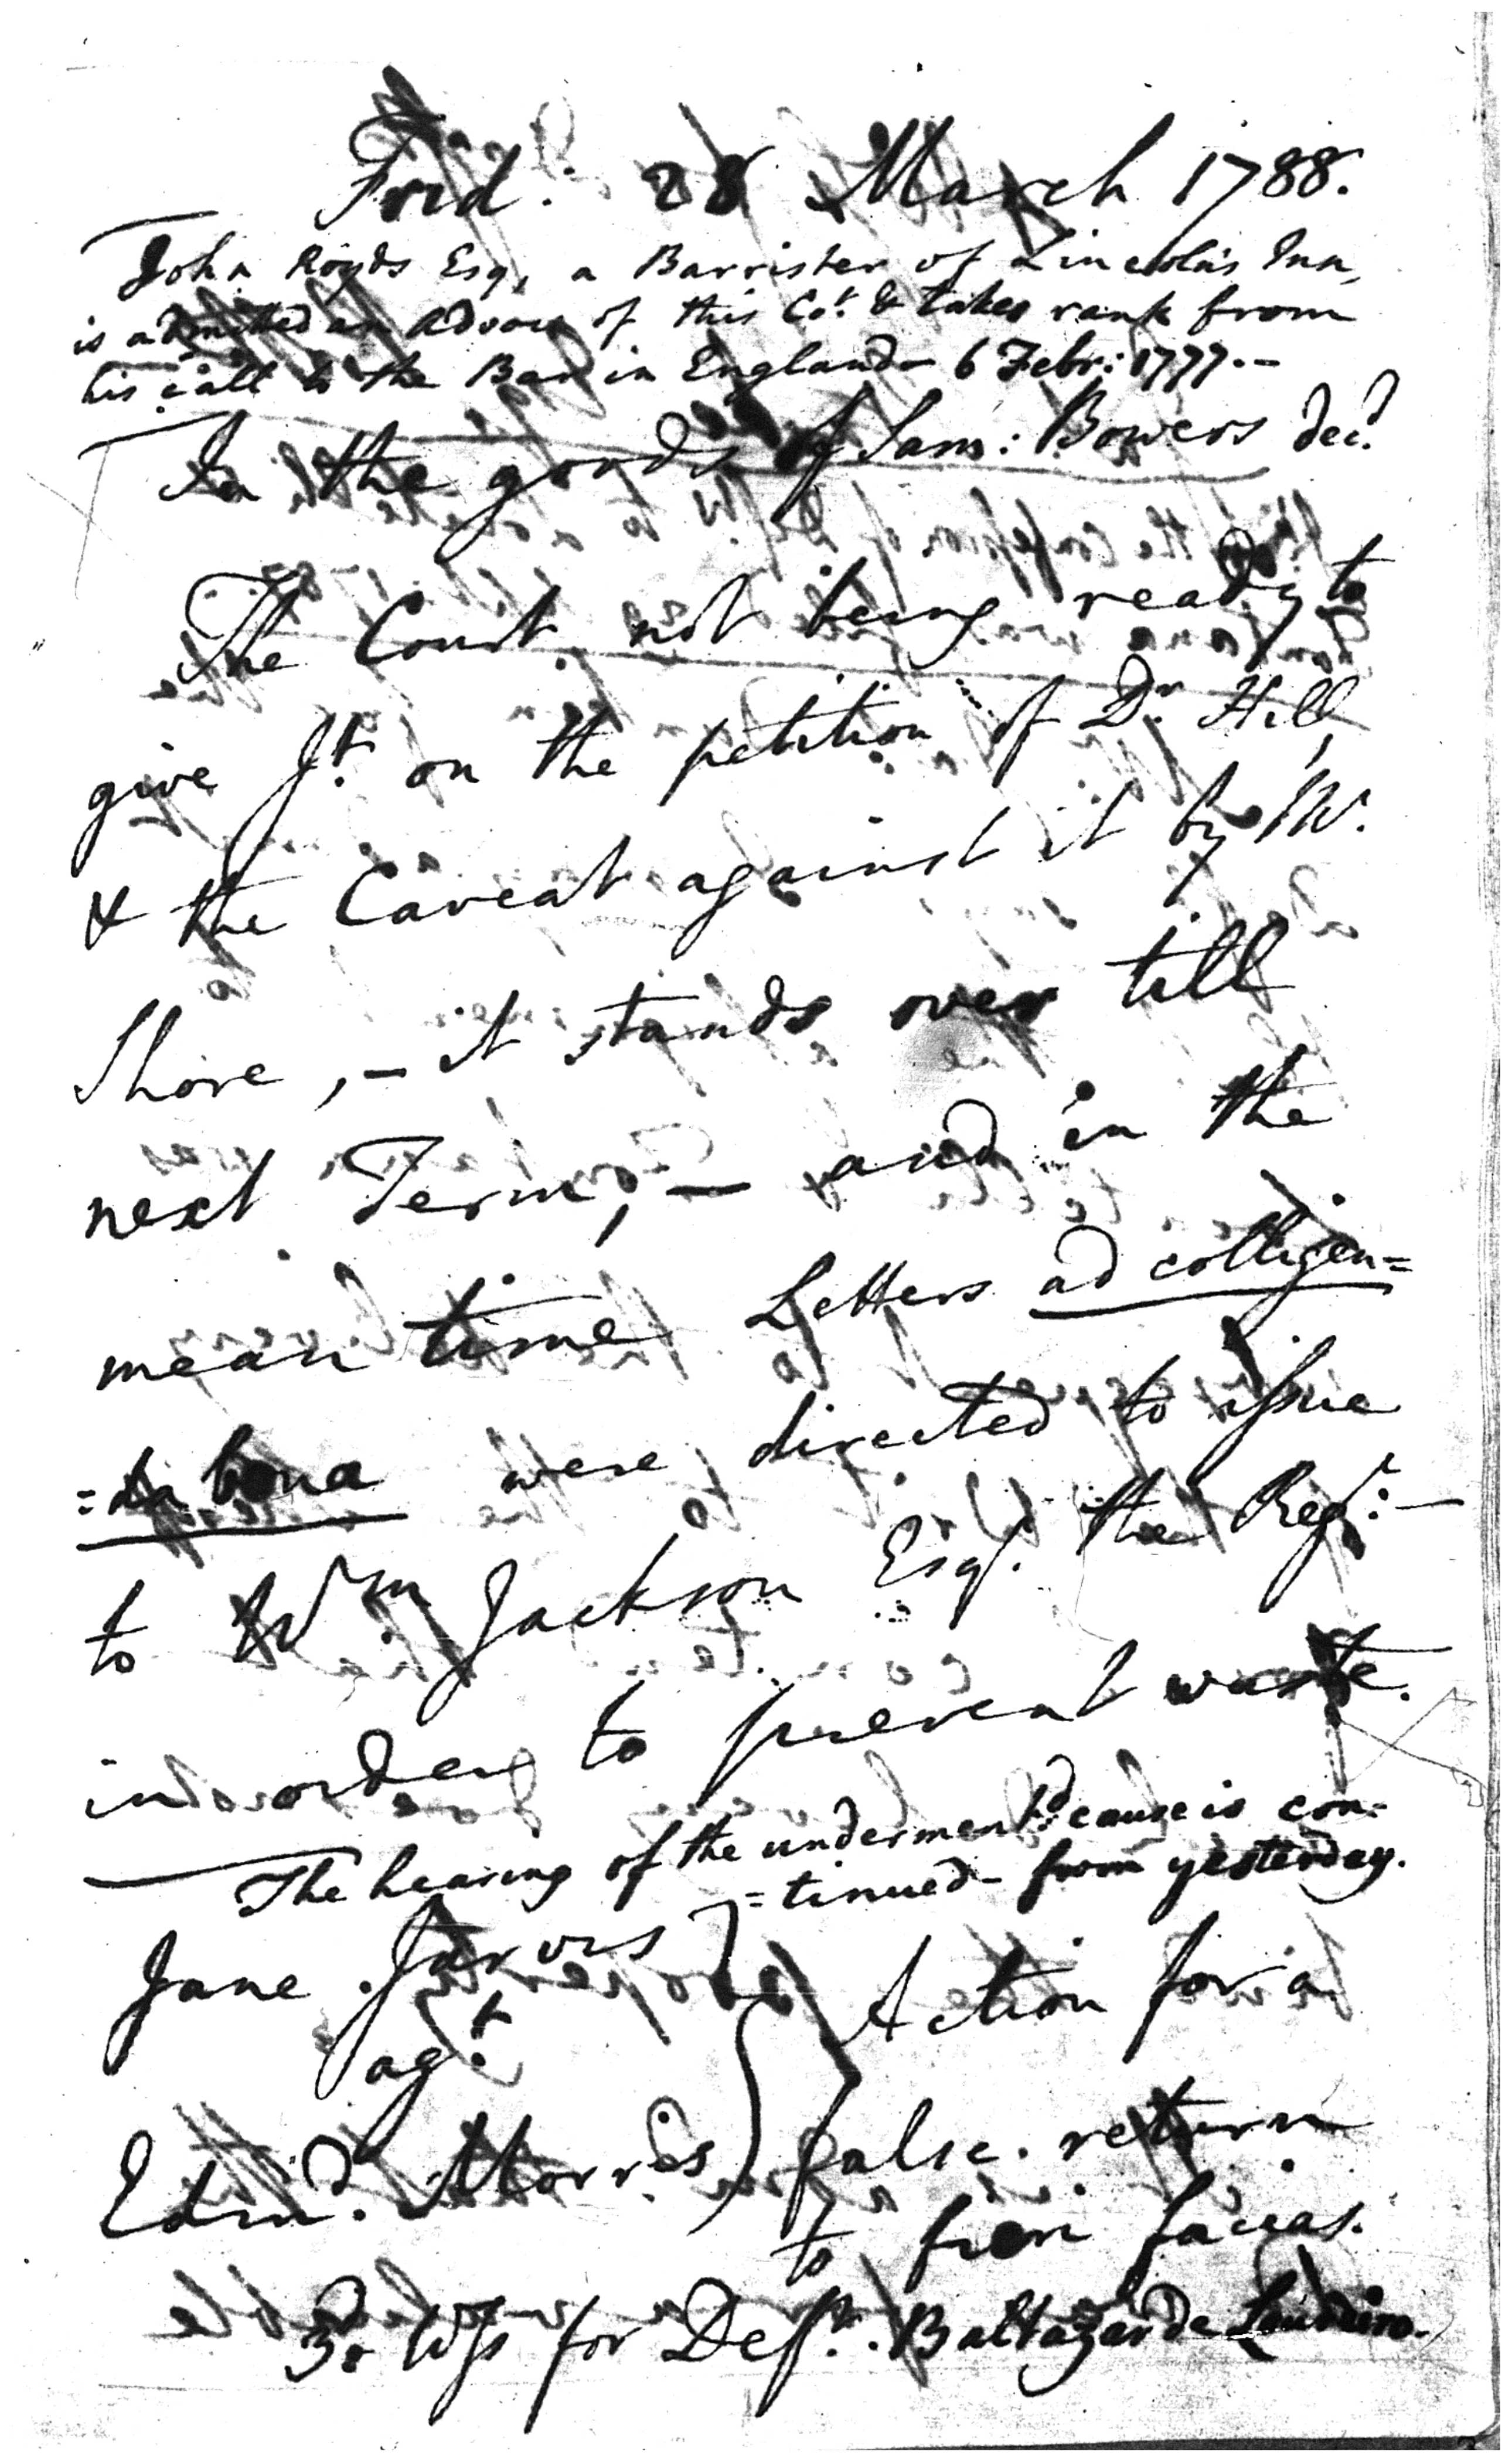 Frid. 28 March 1788.
John Royds Esq, a Barrister of Lincoln's Inn,
is admitted an Advoc of this Co.t & takes rank from
his call to the Bar in England 6 Febr: 1777.-
In the goods of Sam: Bowers dec.d
The Court not being ready to
give J.t on the petition of D.r Hill,
& the Caveat against it by M.
Shore, - it stands over till
next Term; - and in the
mean time Letters ad colligen=
=da bona were directed to issue
to Wm Jackson Esq. the Reg.r: -
in order to prevent waste.
The hearing of the underment.d cause is con=
=tinued from yesterday.
Jane Jarvis
ag.t
Action for a
Edm.d. Morris
false return
to fieri facias.
3.d Wss for Def.t. Baltazar de